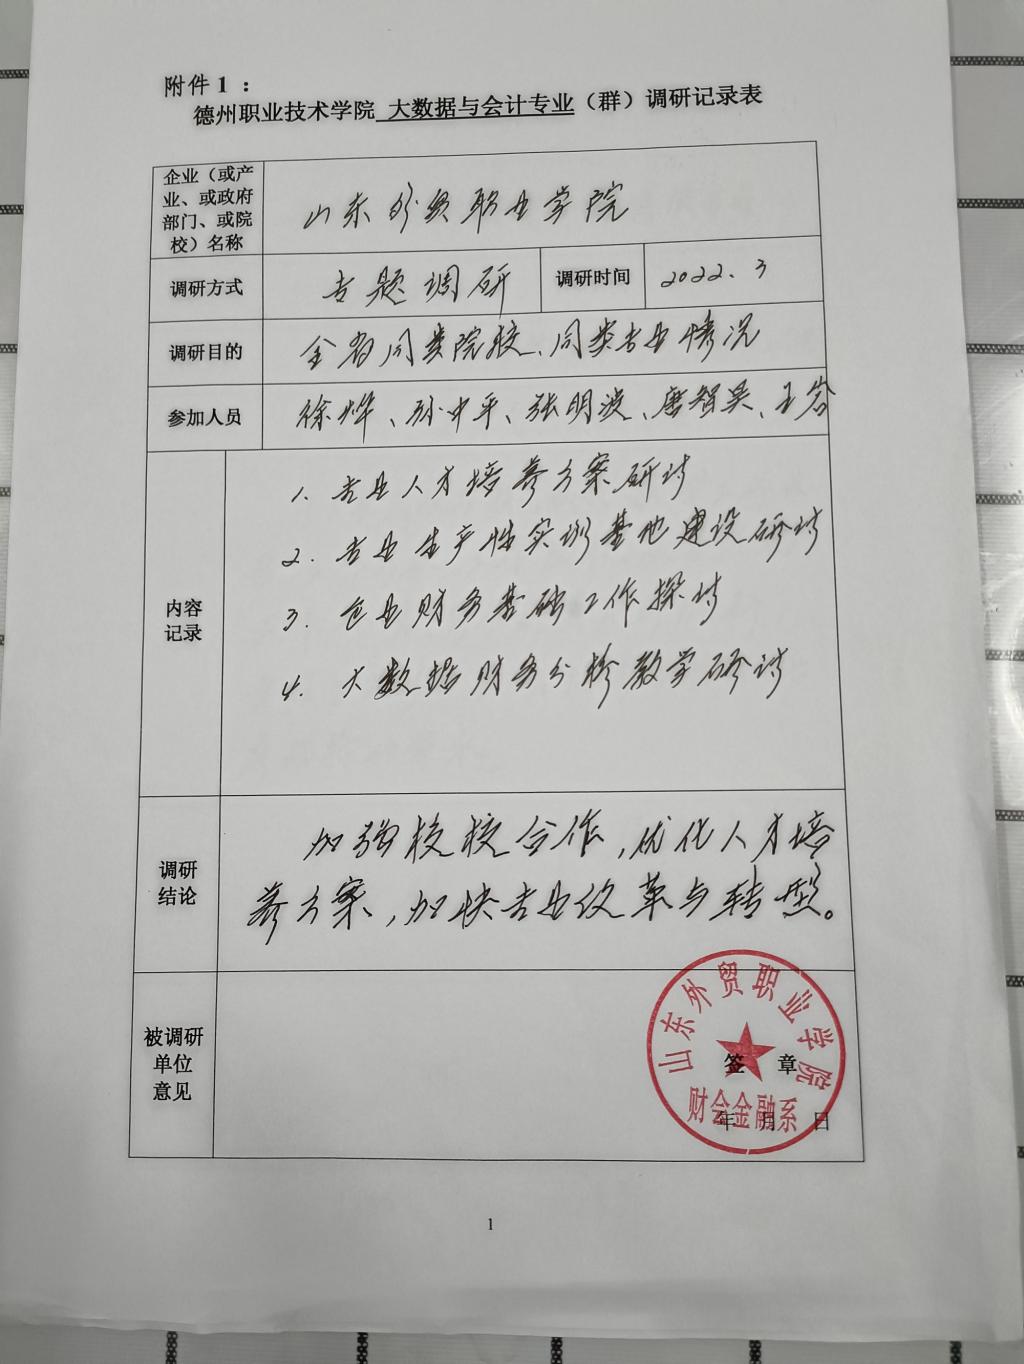 附件1：
德州职业技术学院 大数据与会计专业（群）调研记录表
企业（或产
业、或政府
部门、或院
校）名称
山东外贸职业学院
调研方式
专题调研
调研时间
2022.3
调研目的
全省同类院校、同类专业情况
参加人员
徐烨、孙中平、张明波、唐智昊、王岩
内容
记录
1. 专业人才培养方案研讨
2. 专业生产性实训基地建设研讨
3. 企业财务基础工作探讨
4. 大数据财务分析教学研讨
调研
结论
加强校校合作,优化人才培
养方案,加快专业改革与转型。
被调研
单位
意见
山东外贸职业学院
财会金融系
签 章
年 月 日
1